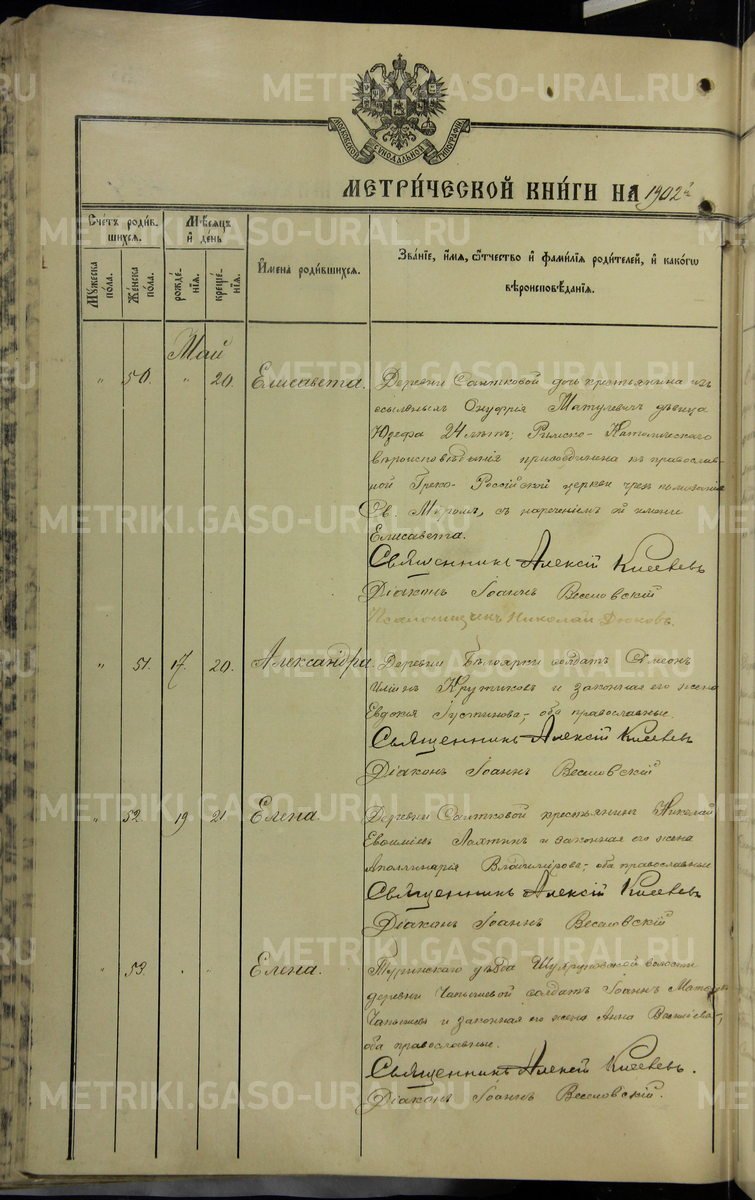 МОСКОВСКОЙ СУНОДАЛЬНОЙ ТИПОГРАФІИ
МЕТРИ́ЧЕСКОЙ КНИ́ГИ НА 1902й
Сче́тъ роди́в-
шихся.
Му́жеска по́ла.
Же́нска по́ла.
М́ѣсяцъ
и҆ день
рожде́-
нія.
креще́-
нія.
И҆мена роди́вшихся.
Зва́ніе, и҆́мя, ѻ҆́тчество и҆ фами́лія роди́телей, и҆ како́гѡ
вѣроисповѣ́данія.
Май
" 50. " 20. Елисавета.
Деревни Санѣковой дочь крестьянина изъ
ссыльныхъ Онуфрія Матулевич девица
Юзефа 24 лѣтъ; Римско-Католическаго
вѣроисповѣданія присоединена къ православ-
ной Греко-Россійской церкви чрезъ помазаніе
Св. Мѵромъ, съ нареченіемъ ей имени
Елисавета.
Священникъ Алексій Киселевъ
Діаконъ Іоаннъ Веселовскій
Псаломщикъ Николай
" 51. 17. 20. Александра.
Деревни Бѣлоярки солдатъ Симеонъ
Иліинъ Кружиковъ и законная его жена
Евдокія Іустинова, оба православные.
Священникъ Алексій Киселевъ
Діаконъ Іоаннъ Веселовскій
" 52. 19 21. Елена.
Деревни крестьянинъ Николай
Евѳиміевъ Лахтинъ и законная его жена
Аполлинарія Владимірова, оба православные
Священникъ Алексій Киселевъ
Діаконъ Іоаннъ Веселовскій
" 53. " " Елена.
Туринскаго уѣзда волости
деревни Чапышевой солдатъ Іоаннъ
Чапышевъ и законная его жена Анна Василіева,
оба православные.
Священникъ Алексій Киселевъ.
Діаконъ Іоаннъ Веселовскій.
METRIKI.GASO-URAL.RU